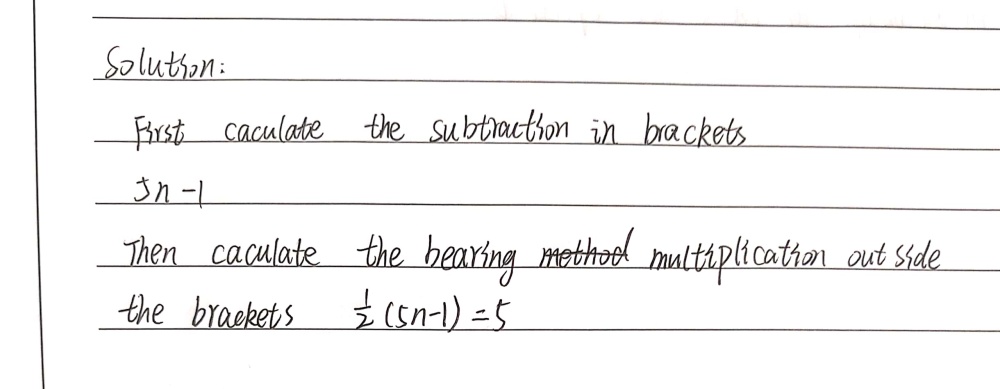 Solution:
First caculate the subtraction in brackets
5n-1
Then caculate the bearing method multiplication out side
the brackets 1/2 (5n-1) = 5